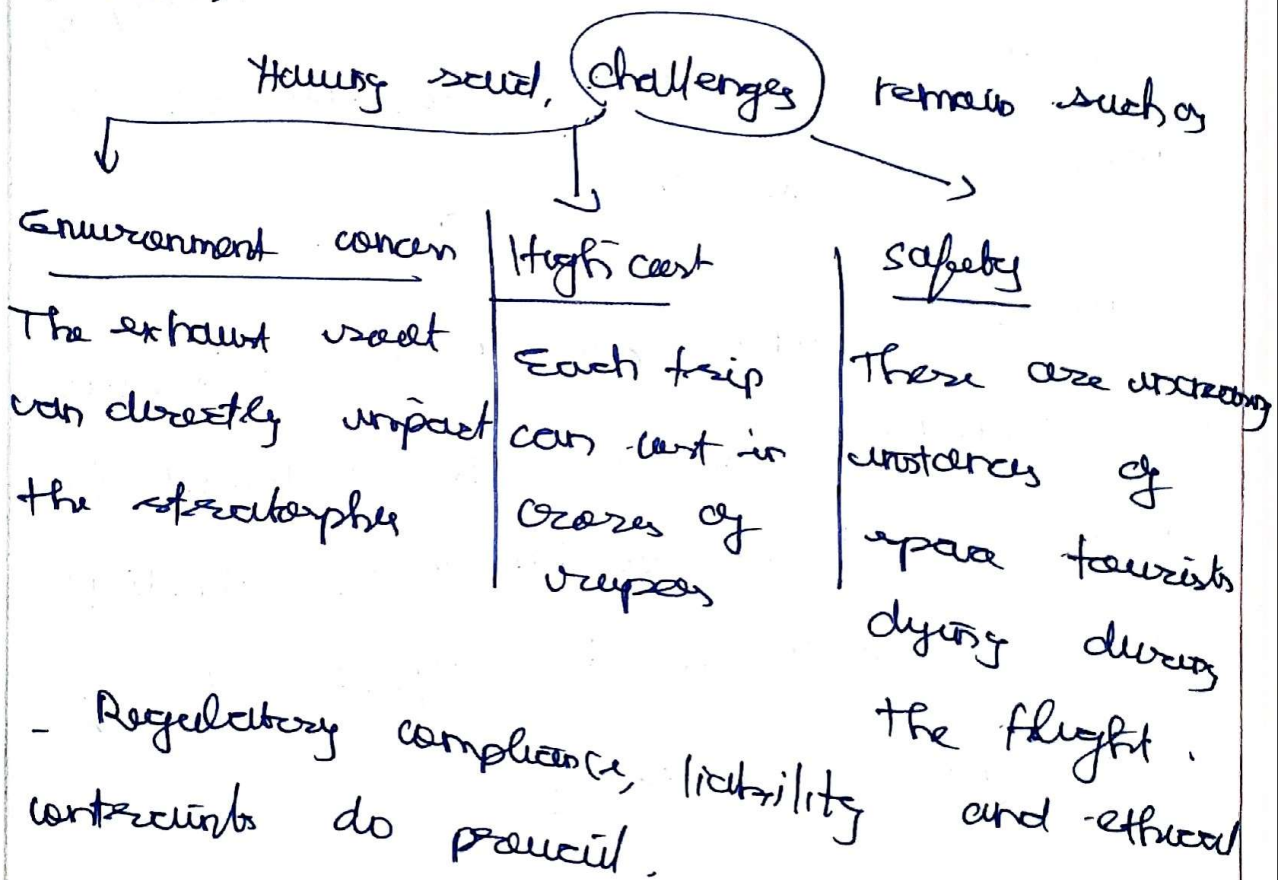 Having said, challenges remain such as
Environment concern
The exhaust
can directly impact
the stratosphe
High cost
Each trip
can cost in
crores of
rupees
safety
There are increasing
instances of
space tourists
dying during
the flight.
- Regulatory compliance, liability and ethical
contraints do prevail.